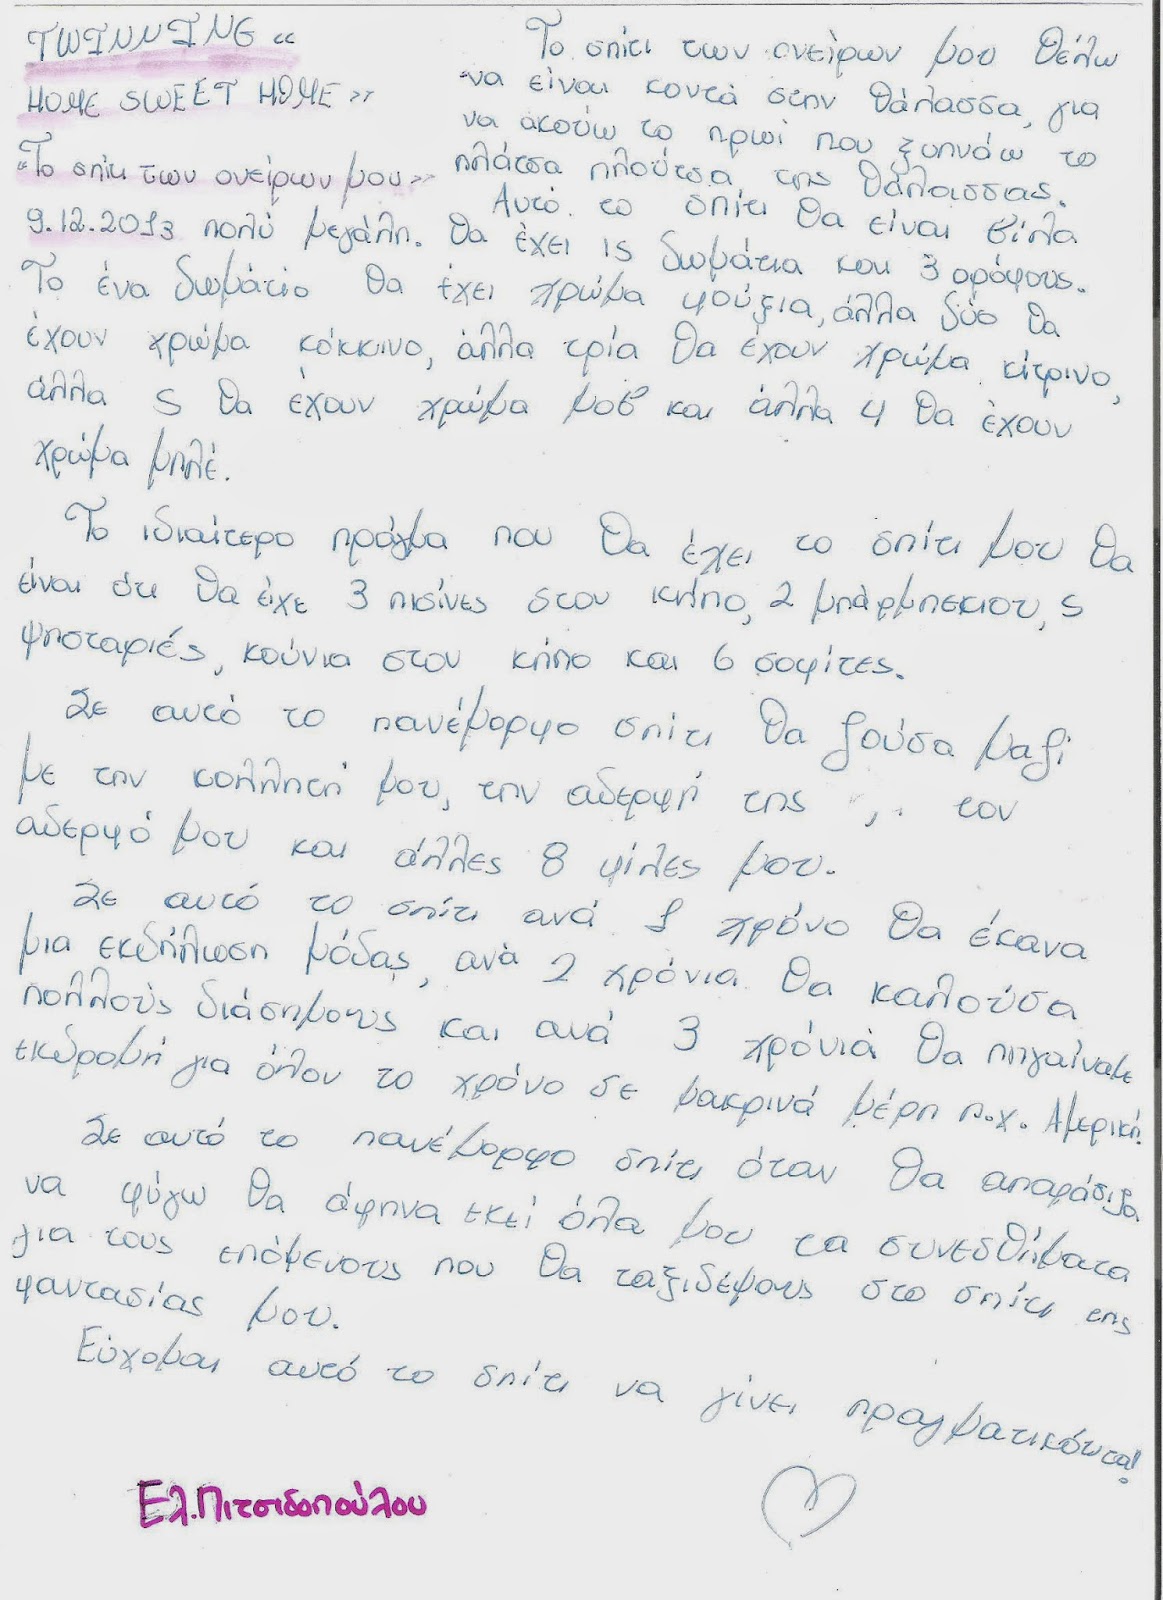 TWINNING «
HOME SWEET HOME »
«Το σπίτι των ονείρων μου»
9.12.2013
Το σπίτι των ονείρων μου θέλω
να είναι κοντά στην θάλασσα, για
να ακούω το πρωί που ξυπνάω το
πλάτσα πλούτσα της θάλασσας.
Αυτό το σπίτι θα είναι βίλα
πολύ μεγάλη. Θα έχει 15 δωμάτια και 3 ορόφους.
Το ένα δωμάτιο θα έχει χρώμα φούξια, άλλα δύο θα
έχουν χρώμα κόκκινο, άλλα τρία θα έχουν χρώμα κίτρινο,
άλλα 5 θα έχουν χρώμα μοβ και άλλα 4 θα έχουν
χρώμα μπλέ.
Το ιδιαίτερο πράγμα που θα έχει το σπίτι μου θα
είναι ότι θα είχε 3 πισίνες στον κήπο, 2 μπάρμπεκιου, 5
ψησταριές, κούνια στον κήπο και 6 σοφίτες.
Σε αυτό το πανέμορφο σπίτι θα ζούσα μαζί
με την κολλητή μου, την αδερφή της , τον
αδερφό μου και άλλες 8 φίλες μου.
Σε αυτό το σπίτι ανά 1 χρόνο θα έκανα
μια εκδήλωση μόδας, ανά 2 χρόνια θα καλούσα
πολλούς διάσημους και ανά 3 χρόνιά θα πηγαίναμε
εκδρομή για όλον το χρόνο σε μακρινά μέρη π.χ. Αμερική.
Σε αυτό το πανέμορφο σπίτι όταν θα αποφάσιζα
να φύγω θα άφηνα εκεί όλα μου τα συνεσθήματα
για τους επόμενους που θα ταξιδέψους στο σπίτι της
φαντασίας μου.
Εύχομαι αυτό το σπίτι να γίνει πραγματικότητα!
Ελ.Πιτσιδοπούλου